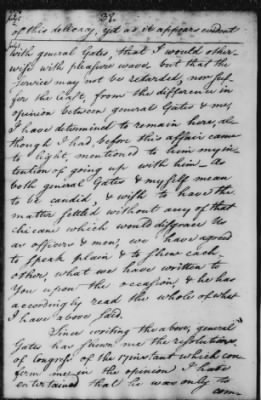 38.
of this delicacy, yet as it appears evident
with general Gates, that I would other-
wise with pleasure wave, but that the
service may not be retarded, nor suf-
fer the least, from the difference in
opinion between general Gates & me,
I have determined to remain here, al-
though I had, before this affair came
to light, mentioned to him my in-
tention of going up with him — As
both general Gates & myself mean
to be candid, & wish to have the
matter settled without any of that
chicane which would disgrace us
as officers & men, we have agreed
to speak plain & to shew each
other, what we have written to
You upon the occasion, & he has
accordingly read the whole of what
I have above said.
Since writing the above, general
Gates has shewn me the resolutions
of Congress of the 17 instant which con-
firm me in the opinion I have
entertained that he was only to
com-